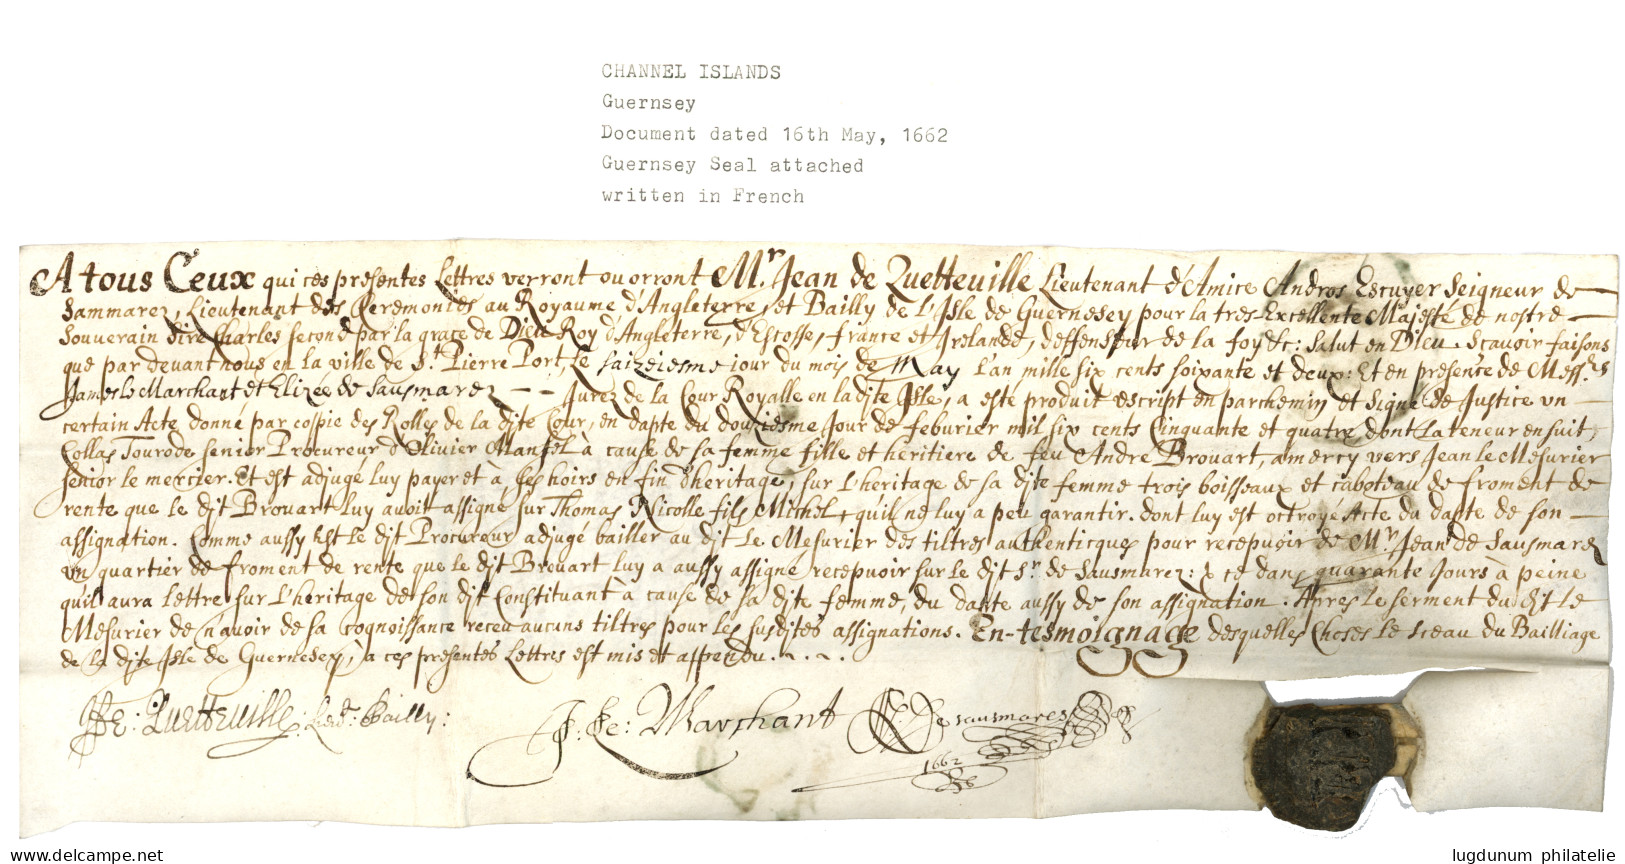 CHANNEL ISLANDS
Guernsey
Document dated 16th May, 1662
Guernsey Seal attached
written in French
A tous Ceux qui ces presentes Lettres verront ou orront Mr. Jean de Quetteville Lieutenant d'Amice Andros Escuyer Seigneur de
Sammarez, Lieutenant des Ceremonies au Royaume d'Angleterre, et Bailly de L'Isle de Guernesey pour la tres-Excellente Majesté de nostre
Souverain Sire Charles second par la grace de Dieu Roy d'Angleterre, d'Escosse, france et Irelande, deffenseur de la foy &c: Salut en Dieu. Scavoir faisons
que par devant nous en la ville de St. Pierre Port, Le saizeiesme jour du mois de May L'an mille six cents soixante et deux: Et en presence de Messrs
James le Marchant et Elizée de Sausmarez Jurez de la Cour Royalle en la dite Isle, a esté produit escript en parchemin et signé de Justice un
certain Acte donné par coppie des Rolles de la dite Cour, en datte du douziesme Jour de feburier mil six cents Cinquante et quatre dont la teneur ensuit,
Collas Tourode senior Procureur d'Olivier Mansel à cause de sa femme fille et heritiere de feu André Brouart, amercy vers Jean le Mesurier
senior le mercier. Et est adjugé luy payer et à ses hoirs en fin d'heritage, sur L'heritage de sa dite femme trois boisseaux et caboteau de froment de
rente que le dit Brouart luy avoit assigné sur Thomas Nicolle fils Michel, qu'il ne luy a peu garantir. dont luy est octroyé Acte du datte de son
assignation. Comme aussy Est le dit Procureur adjugé bailler au dit Le Mesurier des tiltres authenticques pour recepvoir de Mr. Jean de Sausmarez
un quartier de froment de rente que le dit Brouart luy a aussy assigné recepvoir sur le dit Sr. de Sausmarez: & ce dans quarante Jours à peine
qu'il aura Lettre sur L'heritage de son dit Constituant à cause de sa dite femme, du datte aussy de son assignation. Apres le serment du dit Le
Mesurier de n'avoir de sa cognoissance receu aucuns tiltres pour les susdites assignations. En-tesmoignage desquelles Choses Le Sceau du Bailliage
de la dite Isle de Guernesey, à ces presentes Lettres est mis et appendu.
Quetteville: Bailly:
Le: Marchant
De Sausmarez
1662
akpool.de
lugdunum philatelie